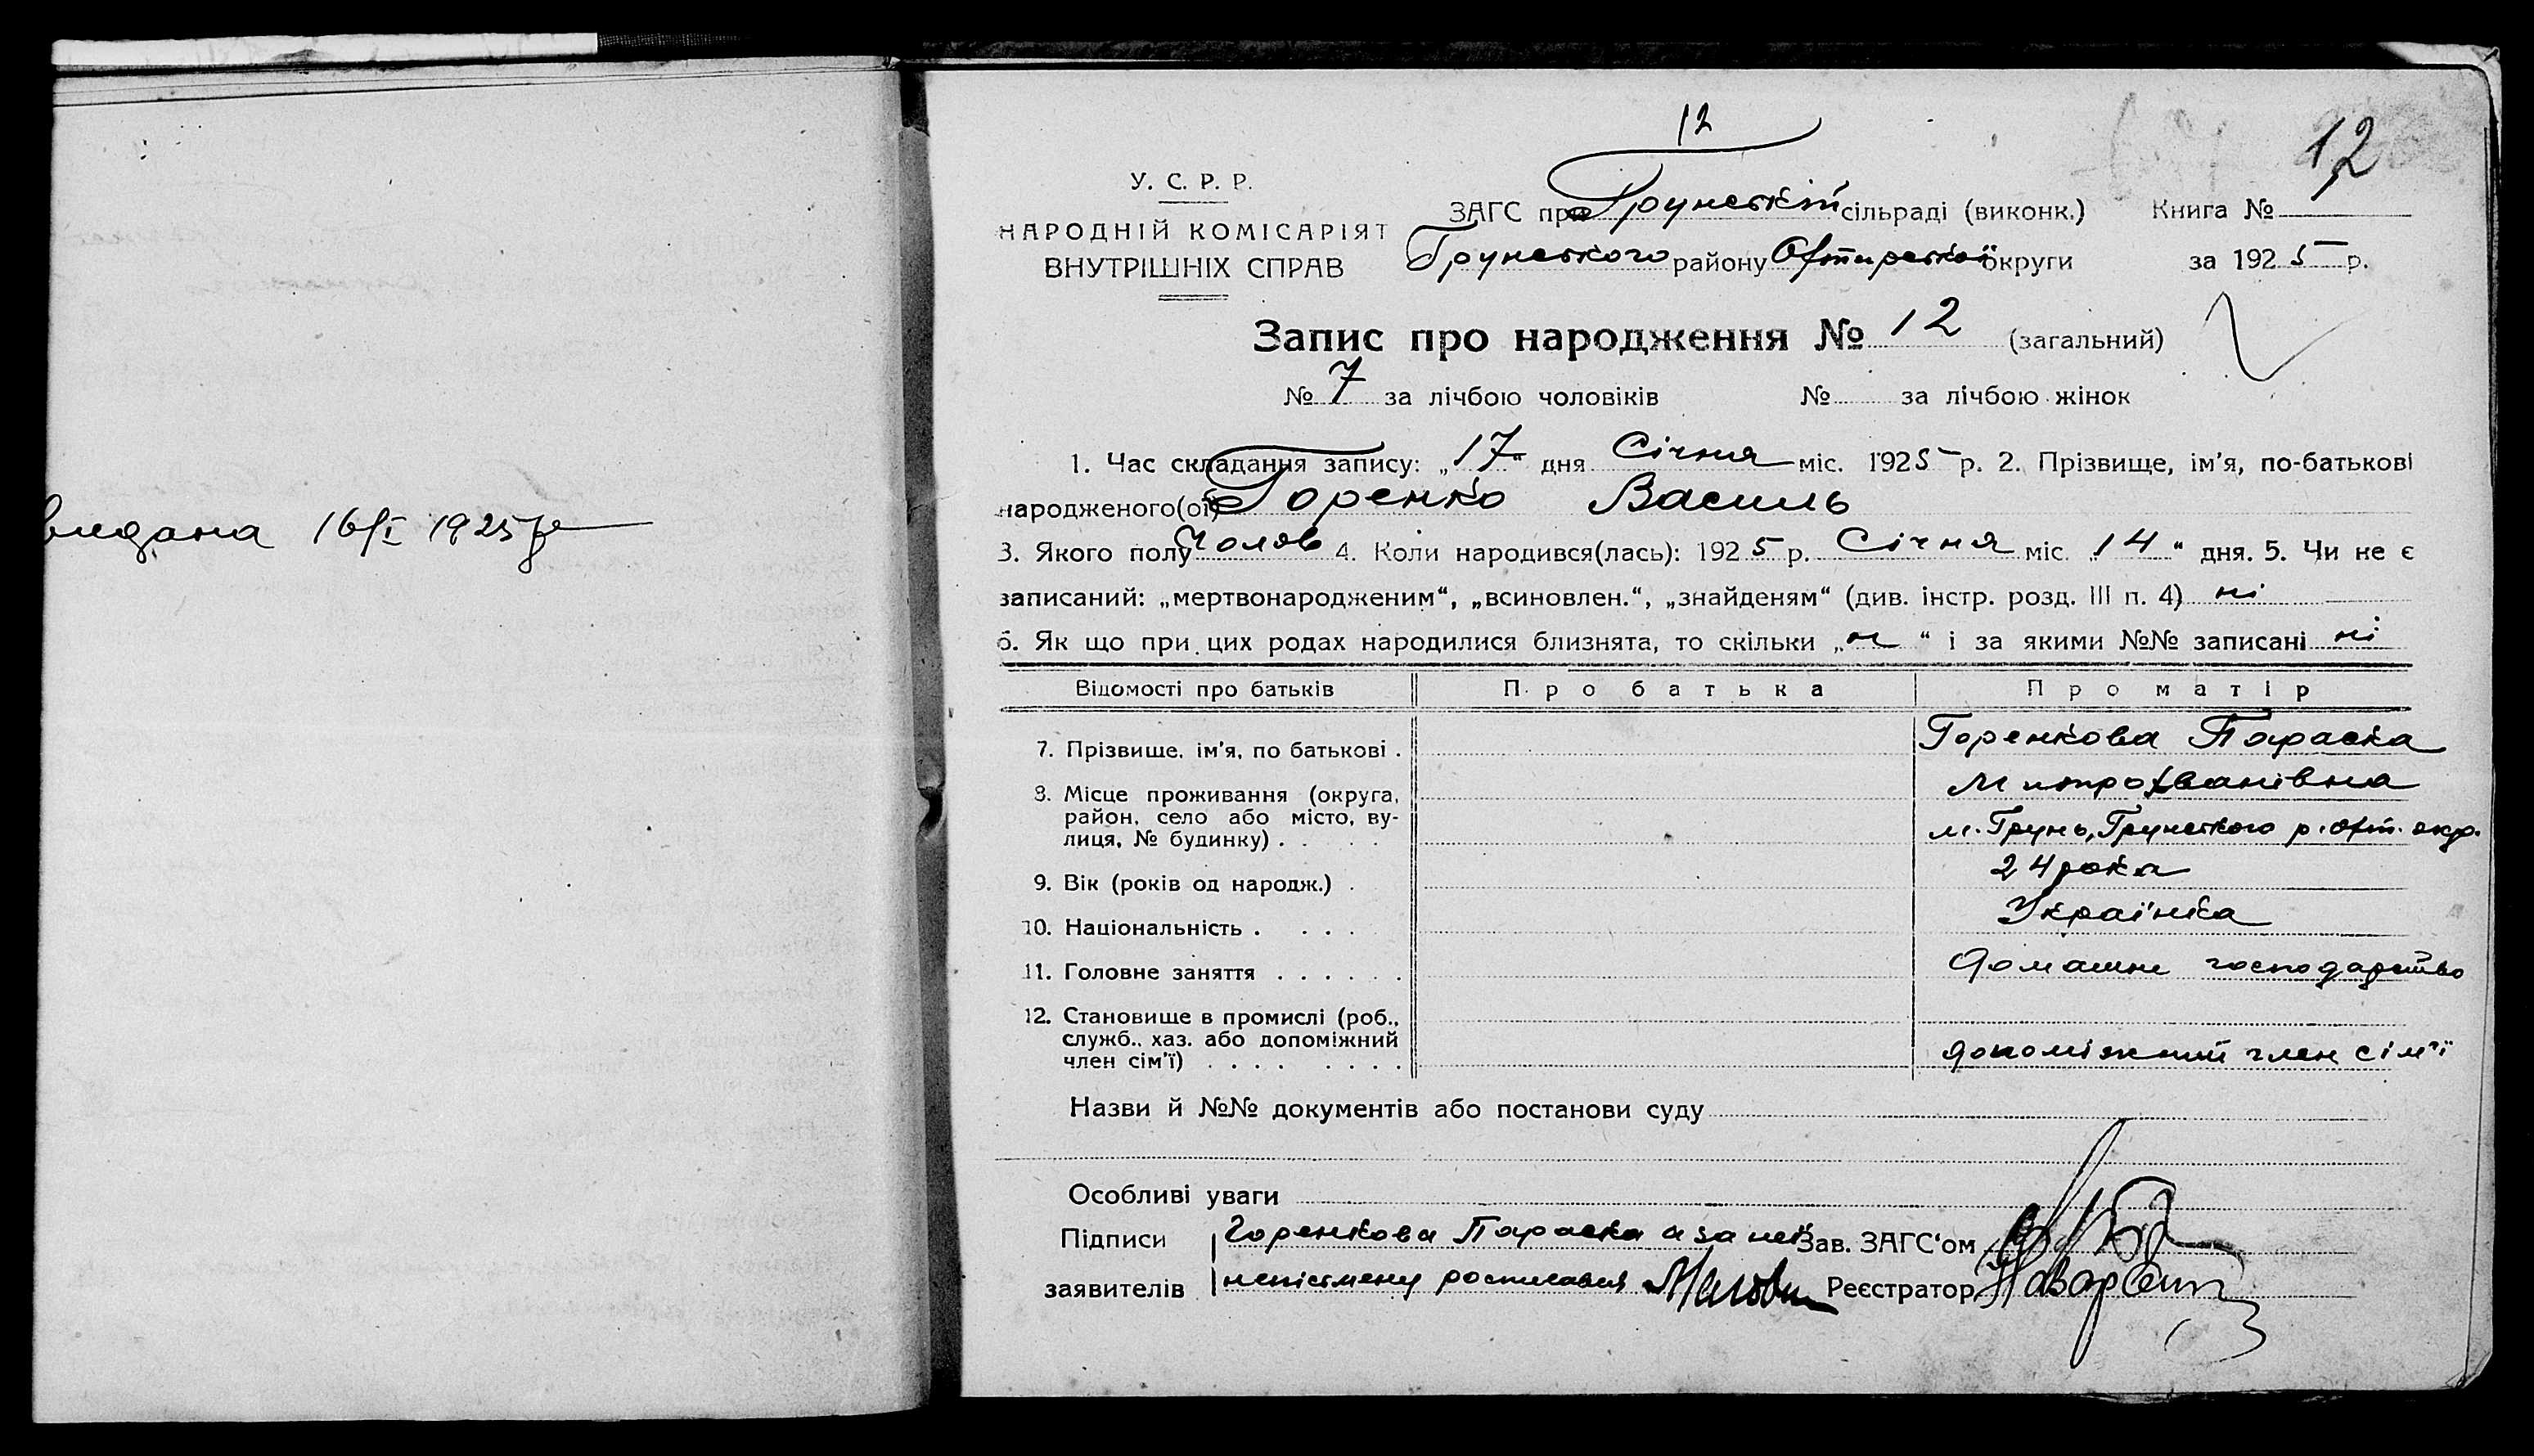 видана 16/I 1925 р
12
12
У. С. Р. Р.
НАРОДНІЙ КОМІСАРІЯТ
ВНУТРІШНІХ СПРАВ
ЗАГС при Грунській сільраді (виконк.) Книга №
Грунського району Охтирської округи за 1925 р.
Запис про народження № 12 (загальний)
№ 7 за лічбою чоловіків № за лічбою жінок
1. Час складання запису: „17“ дня Січня міс. 1925 р. 2. Прізвище, ім'я, по-батькові
народженого(ої) Горенко Василь
3. Якого полу Чолов 4. Коли народився(лась): 1925 р. Січня міс. „14“ дня. 5. Чи не є
записаний: „мертвонародженим“, „всиновлен.“, „знайденям“ (див. інстр. розд. III п. 4) ні
6. Як що при цих родах народилися близнята, то скільки „н“ і за якими №№ записані ні
Відомості про батьків Про батька Про матір
7. Прізвище, ім'я, по батькові . Горенкова Параска
Митрохванівна
8. Місце проживання (округа,
район, село або місто, ву-
лиця, № будинку) . . . . м. Грунь, Грунського р. Охт. окр.
9. Вік (років од народж.) . 24 роки
10. Національність . . . . Українка
11. Головне заняття . . . . . . Домашнє господарство
12. Становище в промислі (роб.,
служб., хаз. або допоміжний
член сім'ї) . . . . . . . . допоміжний член сім'ї
Назви й №№ документів або постанови суду
Особливі уваги
Підписи Горенкова Параска а за неї Зав. ЗАГС'ом
заявителів неписмену росписався Реєстратор